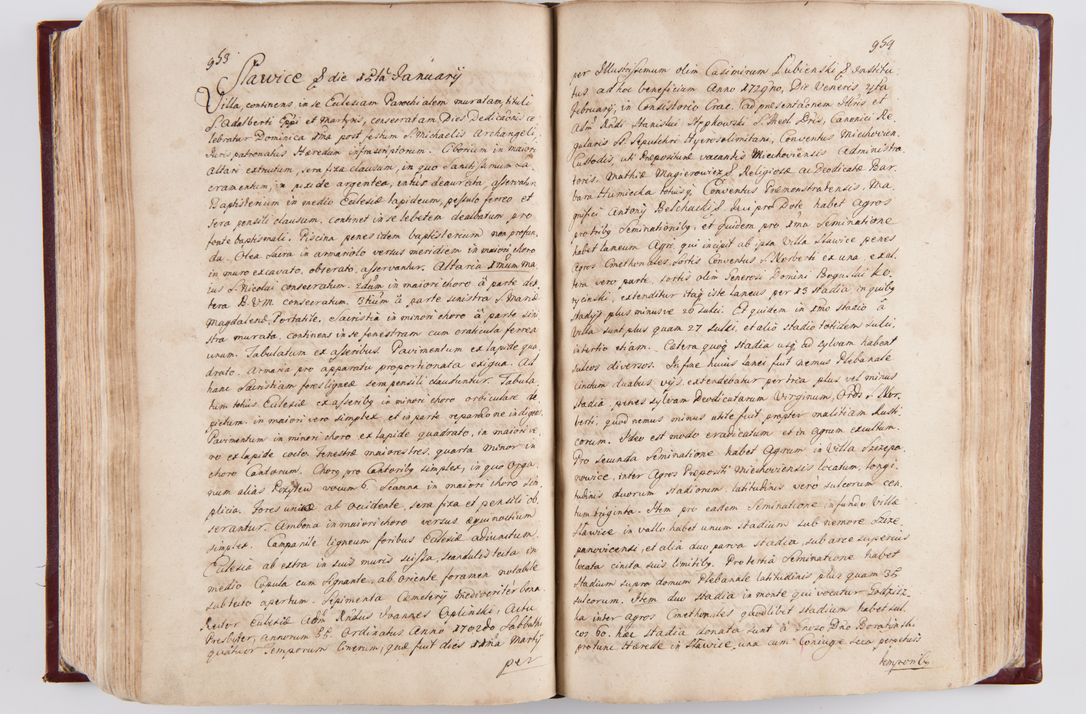 953
Slawice & die 18tâ January
Villa, continens in se Eclesiam Parochialem muratam, tituli
S. Adalberti Eppi et Martyris, consecratam. Dies Dedicaõnis ce
lebratur Dominica 1ma post festum S. Michaelis Archangeli,
Juris patronatûs Hæredum infrascriptorum. Ciborium in maiori
Altari extructum, sera fixa clausum, in quo Sanctissimum Sa
cramentum, in pixide argentea, intùs deaurata, asservatur.
Baptisterium in medio Eclesiæ lapideum, pessulo ferreo et
sera pensili clausum, continet in se lebetem dealbatum pro
fonte baptismali. Piscina penes idem baptisterium non profun
da. Olea Sacra in armariolo versus meridiem in maiori choro
in muro excavato, obserato, asservantur. Altaria 1mum ma
ius S. Nicolai consecratum. 2dum in maiori choro â parte dex
tera B.V.M. consecratum. 3tium â parte sinistra S. Mariæ
Magdalenæ, Portatile. Sacristia in minori choro â parte sini
stra murata, continens in se fenestram cum craticula ferrea
unam. Tabulatum ex asseribus. Pavimentum ex lapide qua
drato. Armaria pro apparatu proportionata exigua. Ad
hanc Sacristiam fores ligneæ sera pensili clauduntur. Tabula
tum totius Eclesiæ ex asserib9 in minori choro orbiculare de
pictum, in maiori vero simplex, et in parte reparaõne indiget.
Pavimentum in minori choro ex lapide quadrato, in maiori ve
ro ex lapide cocto. Fenestræ maiores tres, quarta minor in
choro Cantorum. Chorg pro Cantorib9 simplex, in quo Orga
num alias Pozytew vocum 6. Scanna in maiori choro sim
plicia. Fores unicæ ab occidente, sera fixa et pensili ob
serantur. Ambona in maiori choro versus æquinoctium
simplex. Campanile ligneum foribus Eclesiæ adiunctum.
Eclesia ab extra in suis muris scissa, scandulis tecta in
medio Copula cum Signante, ab oriente foramen notabile
sub tecto apertum. Sepimenta Cemetery mediocriter bona.
Rector Eclesiæ Adm Rndus Joannes Opliński, Actu
Presbyter, annorum 55. Ordinatus Anno 1702do Sabbatho
quatuor Temporum Cinerum, quæ fuit dies 11ma Martij
per
954
per Illustrissimum olim Casimirum Łubienski & Institu
tus ad hoc beneficium Anno 1729no, Die Veneris 4ta
February, in Consistorio Crac. ad præsentaõnem Illris et
Adm Rndi Stanislai Stępkowski S. Theol. Dris, Canonici Re
gularis SS. Sepulchri Hyerosolimitani, Conventus Miechovien.
Custodis, uti Præpositurę vacantis Miechoviensis Administra
toris. Mathiæ Magierowicz & Religiosæ ac Deodicatæ Bar
bara Humiecka totiusq Conventus Præmonstratensis. Ma
gnifici Antonij Belchacki &. Qui pro Dote habet Agros
pro trib9 Seminationib9, et quidem pro 1ma Seminatione
habet laneum Agri, qui incipit ab ipsa Villa Slawice penes
Agros Cmethonales, sortis Conventus S. Norberti ex una, ex al
tera vero parte, sortis olim Generosi Domini Boguslai Ko
rycinski, extenditur itaq iste laneus per 13 stadia in quib9
stadijs plus minusve 26 sulci. Et quidem in 1mo stadio â
Villa sunt plus quam 27 sulci, et aliô stadio totidem sulci,
in tertio etiam. Cetera quoq stadia usq ad sylvam habent
sulcos diversos. In fine huius lanei fuit nemus Plebanale
cinctum duabus vijs, extendebatur per tria plus vel minus
stadia penes sylvam Deodicatarum Virginum, Ordis S. Nor
berti, quod nemus minus utile fuit propter malitiam Rusti
corum. Ideo est modo eradicatum et in Agrum excultum.
Pro secunda Seminatione habet Agrum in Villa Szczepa
nowice, inter Agros Præpositi Miechoviensis locatum, longi
tudinis duorum stadiorum, latitudinis verò sulcorum cen
tum triginta. Item pro eadem Seminatione in fundo Villæ
Slawice in vallo habet unum stadium sub nemore Szcze
panovicensi, et alia duo parva stadia, sub arce superius
locata cincta suis limitib9. Pro tertiâ Seminatione habet
Stadium supra domum Plebanale latitudinis plus quam 35
sulcorum. Item duo stadia in monte qui vocatur Godzisz
ka inter agros Cmethonales quodlibet stadium habet sul
cos 60. hæc stadia donata sunt â Gnoso Dno Boratinski
protunc Hærede in Slawice, una cum Coniuge sua perpetuis
temporib9